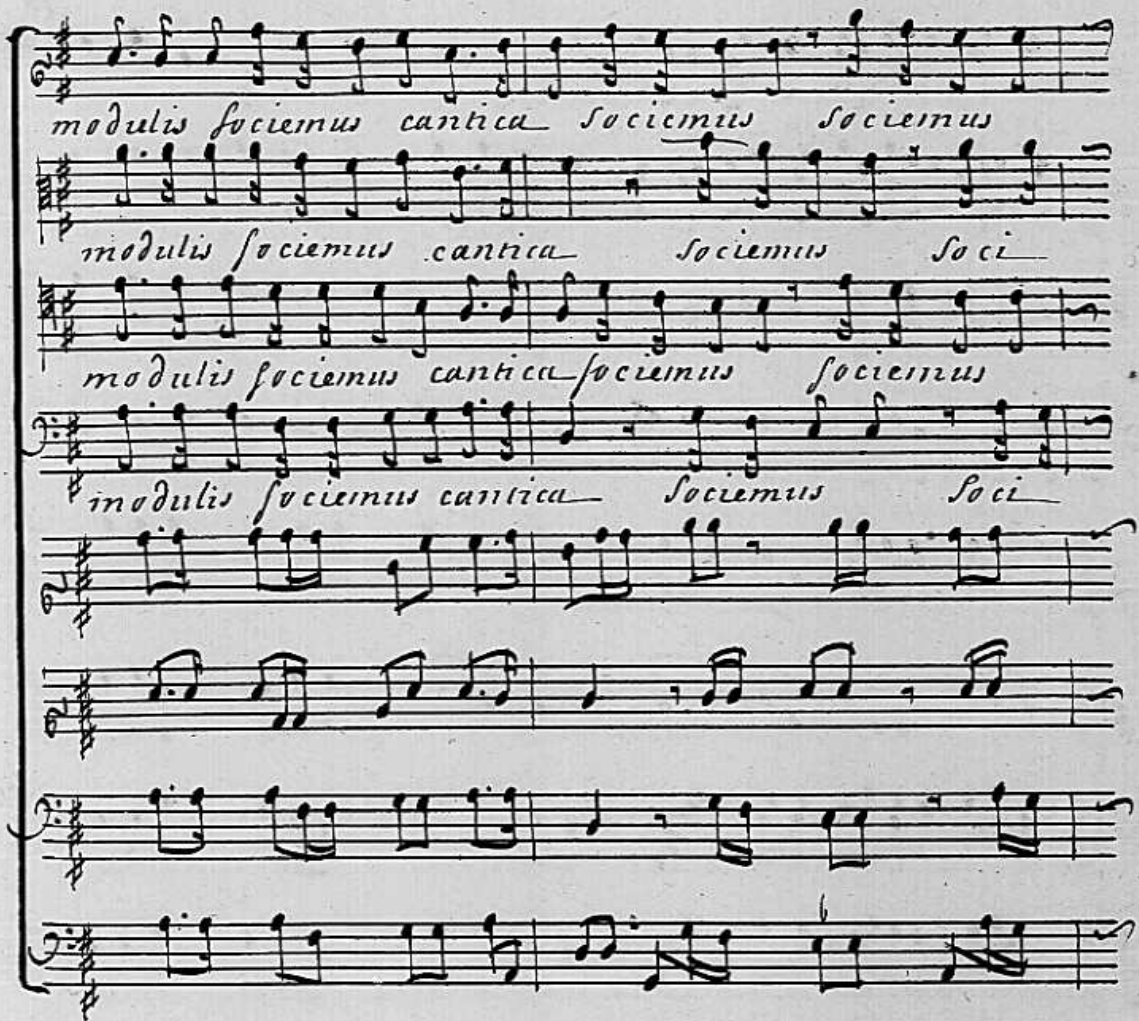 modulis sociemus cantica sociemus sociemus
modulis sociemus cantica sociemus soci
modulis sociemus cantica sociemus sociemus
modulis sociemus cantica sociemus soci